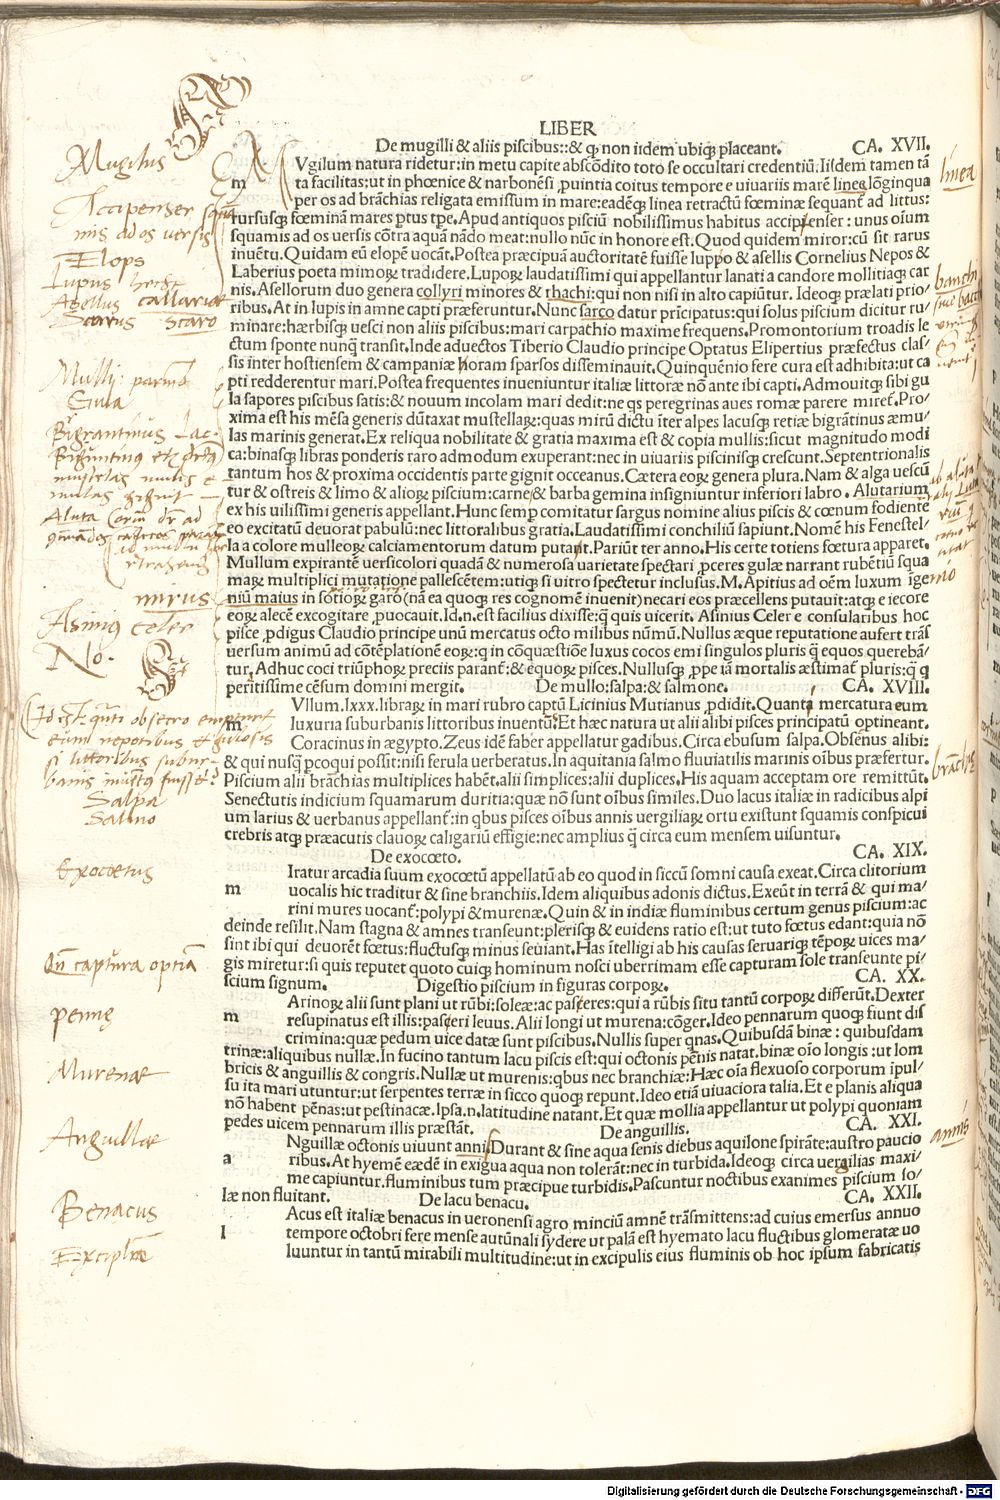 LIBER
De mugilli & aliis piscibus::& qꝫ non iidem ubiqꝫ placeant. CA. XVII.
Vgilum natura ridetur:in metu capite abscōdito toto se occultari credentiū.Iisdem tamen tā
m
ta facilitas:ut in phœnice & narbonēsi ꝓuintia coitus tempore e uiuariis marē linea lōginqua
per os ad brāchias religata emissum in mare:eadēqꝫ linea retractū fœminæ sequant̄ ad littus:
rursusqꝫ fœminā mares ꝑtus tꝑe. Apud antiquos pisciū nobilissimus habitus accipenser : unus oīum
squamis ad os uersis cōtra aquā nādo meat:nullo nūc in honore est. Quod quidem miror:cū sit rarus
inuētu. Quidam eū elopē uocāt.Postea præcipuā auctoritatē fuisse luppo & asellis Cornelius Nepos &
Laberius poeta mimoꝝ tradidere. Lupoꝝ laudatissimi qui appellantur lanati a candore mollitiaqꝫ car
nis. Asellorum duo genera collyri minores & rhachi:qui non nisi in alto capiūtur. Ideoqꝫ prælati prio/
ribus. At in lupis in amne capti præferuntur. Nunc sarco datur prīcipatus:qui solus piscium dicitur ru/
minare:hærbisqꝫ uesci non aliis piscibus:mari carpathio maxime frequens. Promontorium troadis le
ctum sponte nunꝗ̄ transit. Inde aduectos Tiberio Claudio principe Optatus Elipertius præfectus clas/
sis inter hostiensem & campaniæ horam sparsos disseminauit. Quinquēnio fere cura est adhibita:ut ca
pti redderentur mari. Postea frequentes inueniuntur italiæ littoræ nō ante ibi capti. Admouitqꝫ sibi gu
la sapores piscibus satis:& nouum incolam mari dedit:ne qs peregrinas aues romæ parere miret̄. Pro/
xima est his mēsa generis dūtaxat mustellaꝝ:quas mirū dictu īter alpes lacusqꝫ retiæ bigrātinus æmu/
las marinis generat. Ex reliqua nobilitate & gratia maxima est & copia mullis:sicut magnitudo modi
ca:binasqꝫ libras ponderis raro admodum exuperant:nec in uiuariis piscinisqꝫ crescunt. Septentrionalis
tantum hos & proxima occidentis parte gignit occeanus. Cætera eoꝝ genera plura. Nam & alga uescū
tur & ostreis & limo & alioꝝ piscium:carne/& barba gemina insigniuntur inferiori labro. Alutarium
ex his uilissimi generis appellant. Hunc semꝑ comitatur sargus nomine alius piscis & cœnum fodiente
eo excitatū deuorat pabulū:nec littoralibus gratia. Laudatissimi conchiliū sapiunt. Nomē his Fenestel/
la a colore mulleoꝝ calciamentorum datum putant. Pariūt ter anno. His certe totiens fœtura apparet.
Mullum expirantē uersicolori quadā & numerosa uarietate spectari ꝓceres gulæ narrant rubētiū squa
maꝝ multiplici mutatione pallescētem:utiqꝫ si uitro spectetur inclusus. M. Apitius ad oēm luxum īge
niū maius in sotioꝝ garo(nā ea quoqꝫ res cognomē inuenit)necari eos præcellens putauit:atqꝫ e iecore
eoꝝ alecē excogitare ꝓuocauit. Id.n.est facilius dixisse:ꝗ̄ quis uicerit. Asinius Celer e consularibus hoc
pisce ꝓdigus Claudio principe unū mercatus octo milibus nūmū. Nullus æque reputatione aufert trās
uersum animū ad cōtēplationē eoꝝ:q in cōquæstiōe luxus cocos emi singulos pluris ꝗ̄ equos querebā/
tur. Adhuc coci triūphoꝝ preciis parant̄:& equoꝝ pisces. Nullusqꝫ ꝓpe iā mortalis æstimat̄ pluris:ꝗ̄ q
peritissime cēsum domini mergit. De mullo:salpa:& salmone. CA. XVIII.
Vllum.lxxx.libraꝝ in mari rubro captū Licinius Mutianus ꝓdidit. Quanta mercatura eum
m
luxuria suburbanis littoribus inuentū:Et hæc natura ut alii alibi pisces principatū optineant.
Coracinus in ægypto. Zeus idē faber appellatur gadibus. Circa ebusum salpa. Obsēnus alibi:
& qui nusꝗ̄ ꝑcoqui possit:nisi ferula uerberatus. In aquitania salmo fluuiatilis marinis oībus præfertur.
Piscium alii brāchias multiplices habēt.alii simplices:alii duplices. His aquam acceptam ore remittūt.
Senectutis indicium squamarum duritia:quæ nō sunt oībus similes. Duo lacus italiæ in radicibus alpi
um larius & uerbanus appellant̄:in qbus pisces oībus annis uergiliaꝝ ortu existunt squamis conspicui
crebris atqꝫ præacutis clauoꝝ caligariū effigie:nec amplius ꝗ̄ circa eum mensem uisuntur.
De exocœto. CA. XIX.
Iratur arcadia suum exocœtū appellatū ab eo quod in siccū somni causa exeat. Circa clitorium
m
uocalis hic traditur & sine branchiis. Idem aliquibus adonis dictus. Exeūt in terrā & qui ma/
rini mures uocant̄:polypi & murenæ. Quin & in indiæ fluminibus certum genus piscium:ac
deinde resilit. Nam stagna & amnes transeunt:plerisqꝫ & euidens ratio est:ut tuto fœtus edant:quia nō
sint ibi qui deuorēt fœtus:fluctusqꝫ minus seuiant. Has ītelligi ab his causas seruariqꝫ tēpoꝝ uices ma/
gis miretur:si quis reputet quoto cuiqꝫ hominum nosci uberrimam esse capturam sole transeunte pi/
scium signum. Digestio piscium in figuras corpoꝝ. CA. XX.
Arinoꝝ alii sunt plani ut rūbi:soleæ:ac passeres:qui a rūbis situ tantū corpoꝝ differūt. Dexter
m
resupinatus est illis:passeri leuus. Alii longi ut murena:cōger. Ideo pennarum quoqꝫ fiunt dis
crimina:quæ pedum uice datæ sunt piscibus. Nullis super qnas. Quibusdā binæ : quibusdam
trinæ:aliquibus nullæ. In fucino tantum lacu piscis est:qui octonis pēnis natat. binæ oīo longis :ut lom
bricis & anguillis & congris. Nullæ ut murenis:qbus nec branchiæ: Hæc oīa flexuoso corporum īpul/
su ita mari utuntur:ut serpentes terræ in sicco quoqꝫ repunt. Ideo etiā uiuaciora talia. Et e planis aliqua
nō habent pēnas:ut pestinacæ. Ipsa.n.latitudine natant. Et quæ mollia appellantur ut polypi quoniam
pedes uicem pennarum illis præstāt. De anguillis. CA. XXI.
Nguillæ octonis uiuunt annis. Durant & sine aqua senis diebus aquilone spirāte:austro paucio
a
ribus. At hyemē eædē in exigua aqua non tolerāt:nec in turbida. Ideoqꝫ circa uergilias maxi/
me capiuntur. fluminibus tum præcipue turbidis. Pascuntur noctibus exanimes piscium so/
læ non fluitant. De lacu benacu. CA. XXII.
Acus est italiæ benacus in ueronensi agro minciū amnē trāsmittens:ad cuius emersus annuo
l
tempore octobri fere mense autūnali sydere ut palā est hyemato lacu fluctibus glomeratæ uo
luuntur in tantū mirabili multitudine:ut in excipulis eius fluminis ob hoc ipsum fabricatis
Mugilus
Accipenser squa
mis ad os uersis
Elops
Lupus
Asellus callariæ
Scarus Scaro
Mulli:
Gula
Aluta
mirus
Asinius celer
No.
Salpa
Salmo
Exocœtus
captura
pennę
Murenæ
Anguillæ
Benacus
linea
brāchię
annis
Digitalisierung gefördert durch die Deutsche Forschungsgemeinschaft - DFG